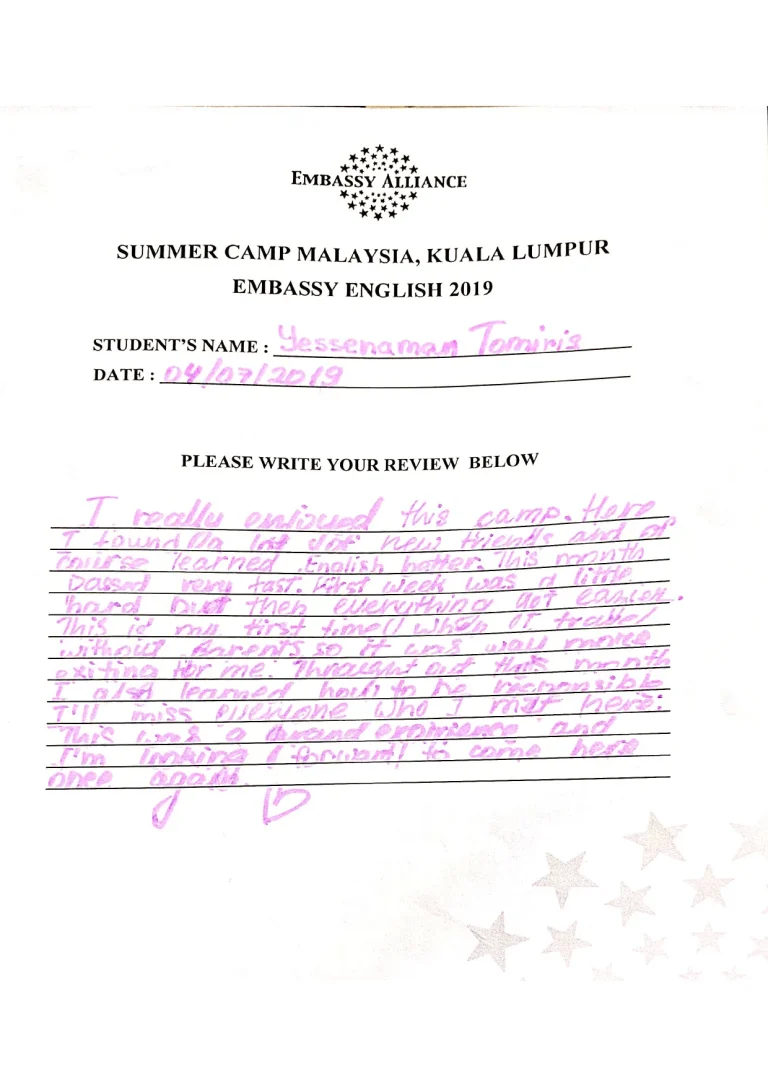 EMBASSY ALLIANCE
SUMMER CAMP MALAYSIA, KUALA LUMPUR
EMBASSY ENGLISH 2019
STUDENT'S NAME : Yessenaman Tomiris
DATE : 04/07/2019
PLEASE WRITE YOUR REVIEW BELOW
I really enjoyed this camp. Here
I found a lot of new friends and of
course learned English better. This month
passed very fast. First week was a little
hard but then everything got easier.
This is my first time when I travel
without parents so it was way more
exiting for me. Throught out this month
I also learned how to be responsible
I'll miss everyone who I met here.
This was a experience and
I'm looking forward to come here
once again.